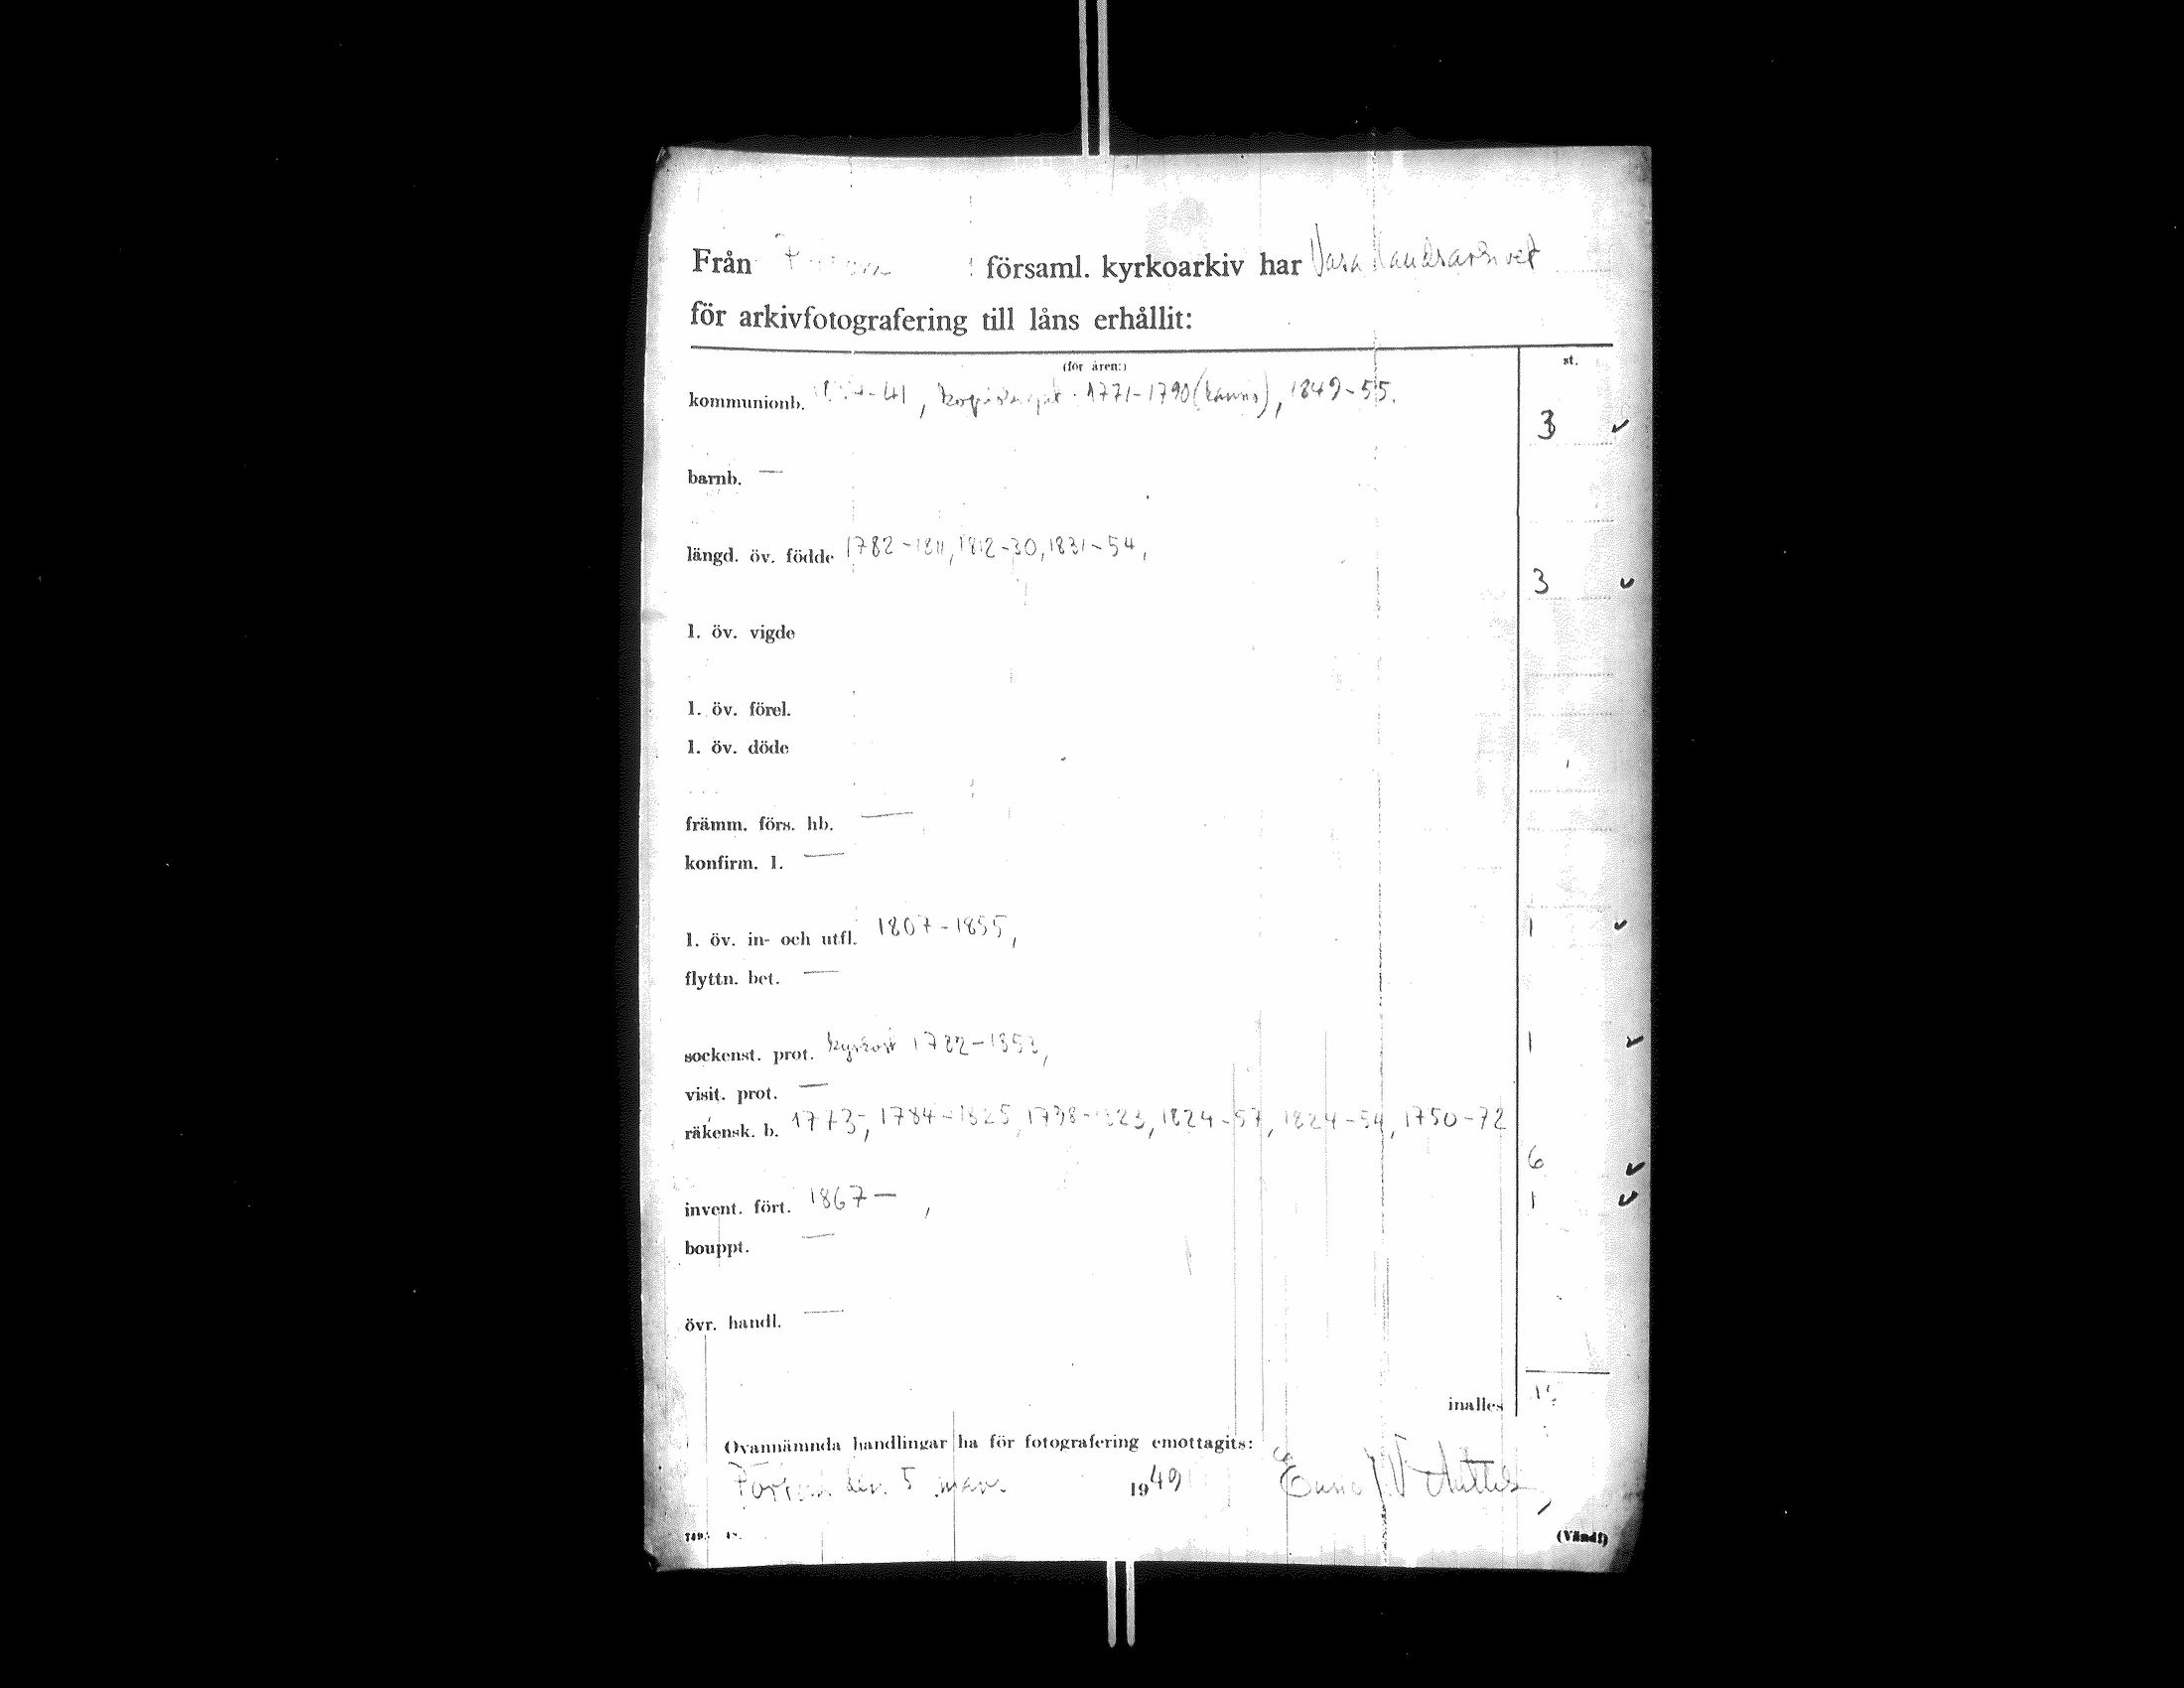 Från församl. kyrkoarkiv har Vasa landsarkivet
för arkivfotografering till låns erhållit:
(för åren:) st.
kommunionb. -41, 1771-1790 1849-55. 3
barnb. —
längd. öv. födde 1782-1811, 1812-30, 1831-54, 3
l. öv. vigde
l. öv. förel.
l. öv. döde
främm. förs. hb. —
konfirm. l. —
l. öv. in- och utfl. 1807-1855, 1
flyttn. bet. —
sockenst. prot. 1
visit. prot. —
räkensk. b. 1773-, 1784-1825, 1824-57, 1824-54, 1750-72 6
invent. fört. 1867— , 1
bouppt. —
övr. handl. —
inalles
Ovannämnda handlingar ha för fotografering emottagits:
den 5 1949
(Vänd!)